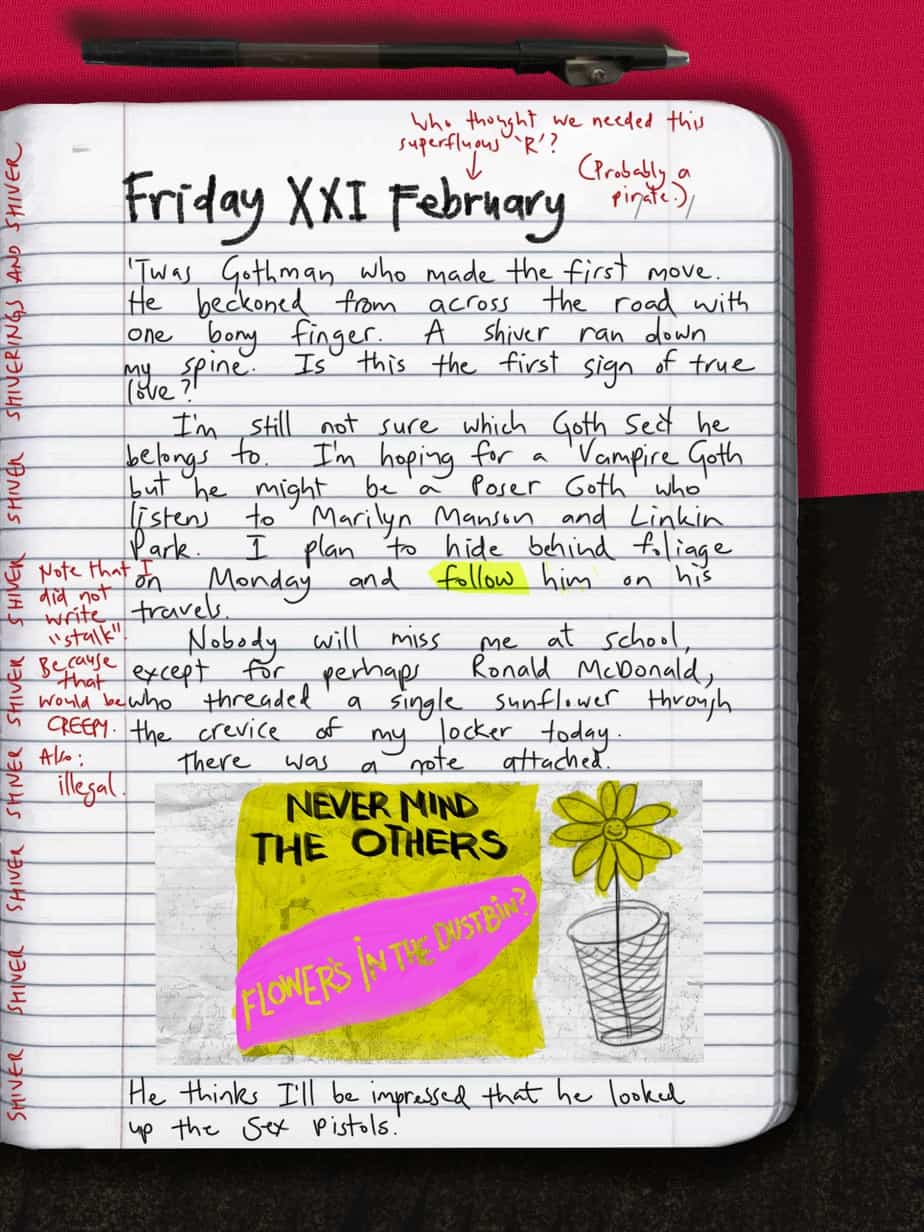 Who thought we needed this
superfluous 'R'?
(Probably a
pirate.)
Friday XXI February
'Twas Gothman who made the first move.
He beckoned from across the road with
one bony finger. A shiver ran down
my spine. Is this the first sign of true
love?
I'm still not sure which Goth Sect he
belongs to. I'm hoping for a Vampire Goth
but he might be a Poser Goth who
listens to Marilyn Manson and Linkin
Park. I plan to hide behind foliage
on Monday and follow him on his
travels.
Nobody will miss me at school,
except for perhaps Ronald McDonald,
who threaded a single sunflower through
the crevice of my locker today.
There was a note attached.
Note that I
did not
write
"stalk".
Because
that
would be
CREEPY.
Also:
illegal.
SHIVER SHIVER SHIVER SHIVER SHIVER SHIVER SHIVER SHIVERINGS AND SHIVER
NEVER MIND
THE OTHERS
FLOWERS IN THE DUSTBIN?
He thinks I'll be impressed that he looked
up the Sex Pistols.